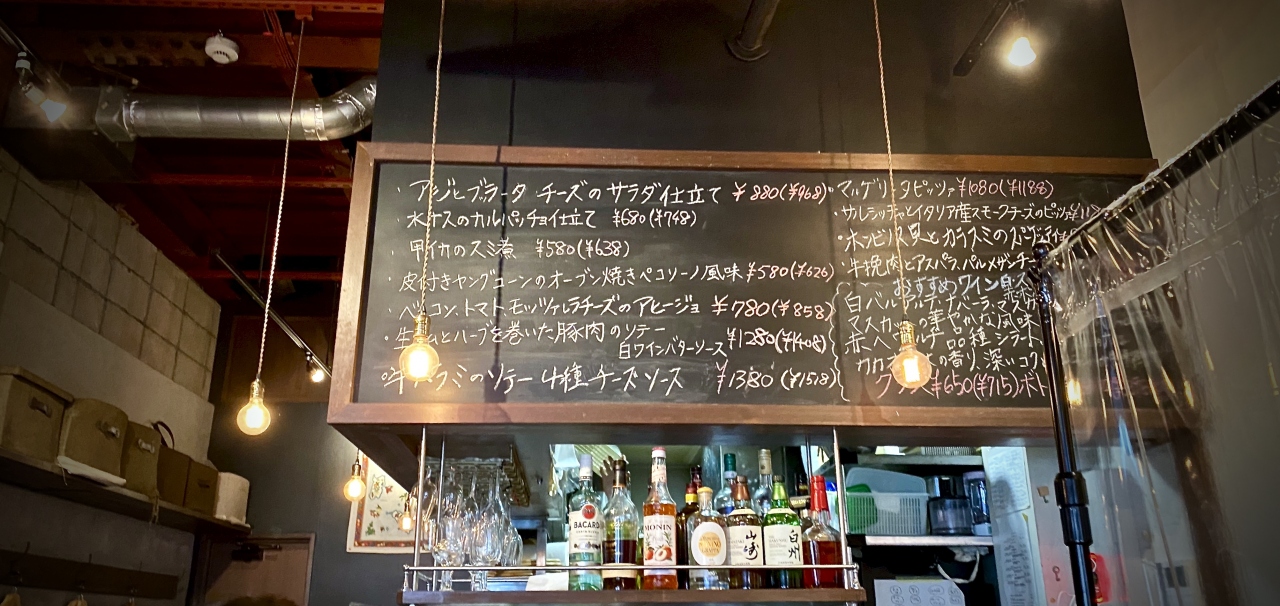 ・アジとブラータチーズのサラダ仕立て ¥880(¥968)
・水ナスのカルパッチョ仕立て ¥680(¥748)
・甲イカのスミ煮 ¥580(¥638)
・皮付きヤングコーンのオーブン焼きペコリーノ風味 ¥580(¥626)
・ベーコン、トマト、モッツァレラチーズのアヒージョ ¥780(¥858)
・生ハムとハーブを巻いた豚肉のソテー
白ワインバターソース ¥1280(¥1408)
ハラミのソテー 4種チーズソース ¥1380(¥1518)
・マルゲリータピッツァ ¥1080(¥1188)
・サルシッチャとイタリア産スモークチーズのピッツァ
・ホンビノス貝とカラスミの
・牛挽肉とアスパラ、パルメザンチー
おすすめワイン
白
マスカットの華やかな風味
赤 品種
の香り、深いコク
グラス¥650(¥715)ボト
BACARDI
MONIN
山崎
白州